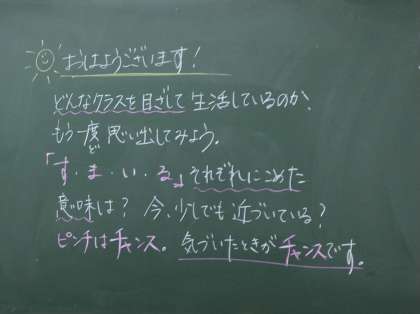 おはようございます！
どんなクラスを目ざして生活しているのか、
もう一度思い出してみよう。
「す・ま・い・る」それぞれにこめた
意味は？今、少しでも近づいている？
ピンチはチャンス。気づいたときがチャンスです。